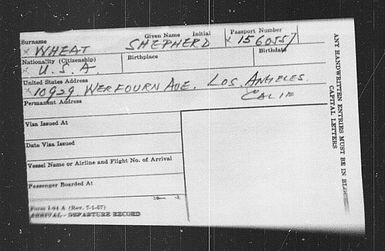 Surname Given Name Initial Passport Number
x WHEAT SHEPHERD x 1560557
Nationality (Citizenship) Birthplace Birthdate
x U.S.A
United States Address
x 10929 WERFOURN AVE. LOS. ANGELES
Permanent Address CALIF
Visa Issued At
Date Visa Issued
Vessel Name or Airline and Flight No. of Arrival
Passenger Boarded At
Form I-94 A (Rev. 7-1-67)
ARRIVAL - DEPARTURE RECORD
ANY HANDWRITTEN ENTRIES MUST BE IN BLOCK
CAPITAL LETTERS